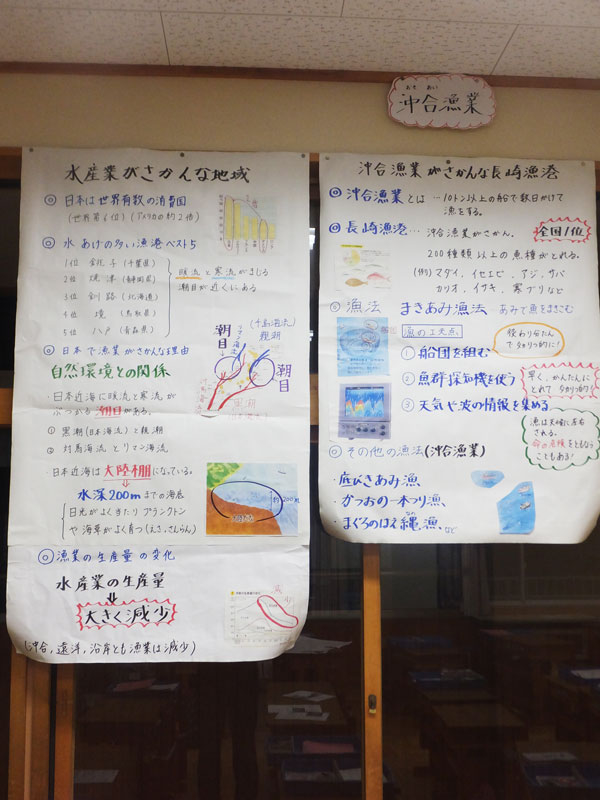 おき あい
沖合漁業
水産業がさかんな地域
◎ 日本は世界有数の消費国
(世界第6位)(アメリカの約2倍)
◎ 水あげの多い漁港ベスト5
1位 銚子(千葉県)
2位 焼津(静岡県)
3位 釧路(北海道)
4位 境(鳥取県)
5位 八戸(青森県)
暖流と寒流がまじる
潮目が近くにある
◎ 日本で漁業がさかんな理由
自然環境との関係
・日本近海に暖流と寒流が
ぶつかる潮目がある。
① 黒潮(日本海流)と親潮
② 対馬海流とリマン海流
潮目
(千島海流)
親潮
潮目
・日本近海は大陸棚になっている。
⇓
水深200mまでの海底
日光がよくきたりプランクトン
や海草がよく育つ(えさ、さんらん)
約200m
◎ 漁業の生産量の変化
水産業の生産量
⇓
大きく減少
減少
(沖合,遠洋,沿岸とも漁業は減少)
沖合漁業がさかんな長崎漁港
◎ 沖合漁業とは…10トン以上の船で数日かけて
漁をする。
◎ 長崎漁港… 沖合漁業がさかん。
全国1位
200種類以上の魚種がとれる。
(例)マダイ、イセエビ、アジ、サバ
カツオ、イサキ、寒ブリなど
◎ 漁法 まきあみ漁法 …あみで魚をまきこむ
漁の工夫点
① 船団を組む
役わり分たん
で効りつ的に!
② 魚群探知機を使う
早く、かんたんに
とれて効りつ的!
③ 天気や波の情報を集める
漁は天候に左右
される。
命の危険をともなう
こともある!
◎ その他の漁法(沖合漁業)
・底びきあみ漁、
・かつおの一本つり漁、
・まぐろのはえ縄漁、など